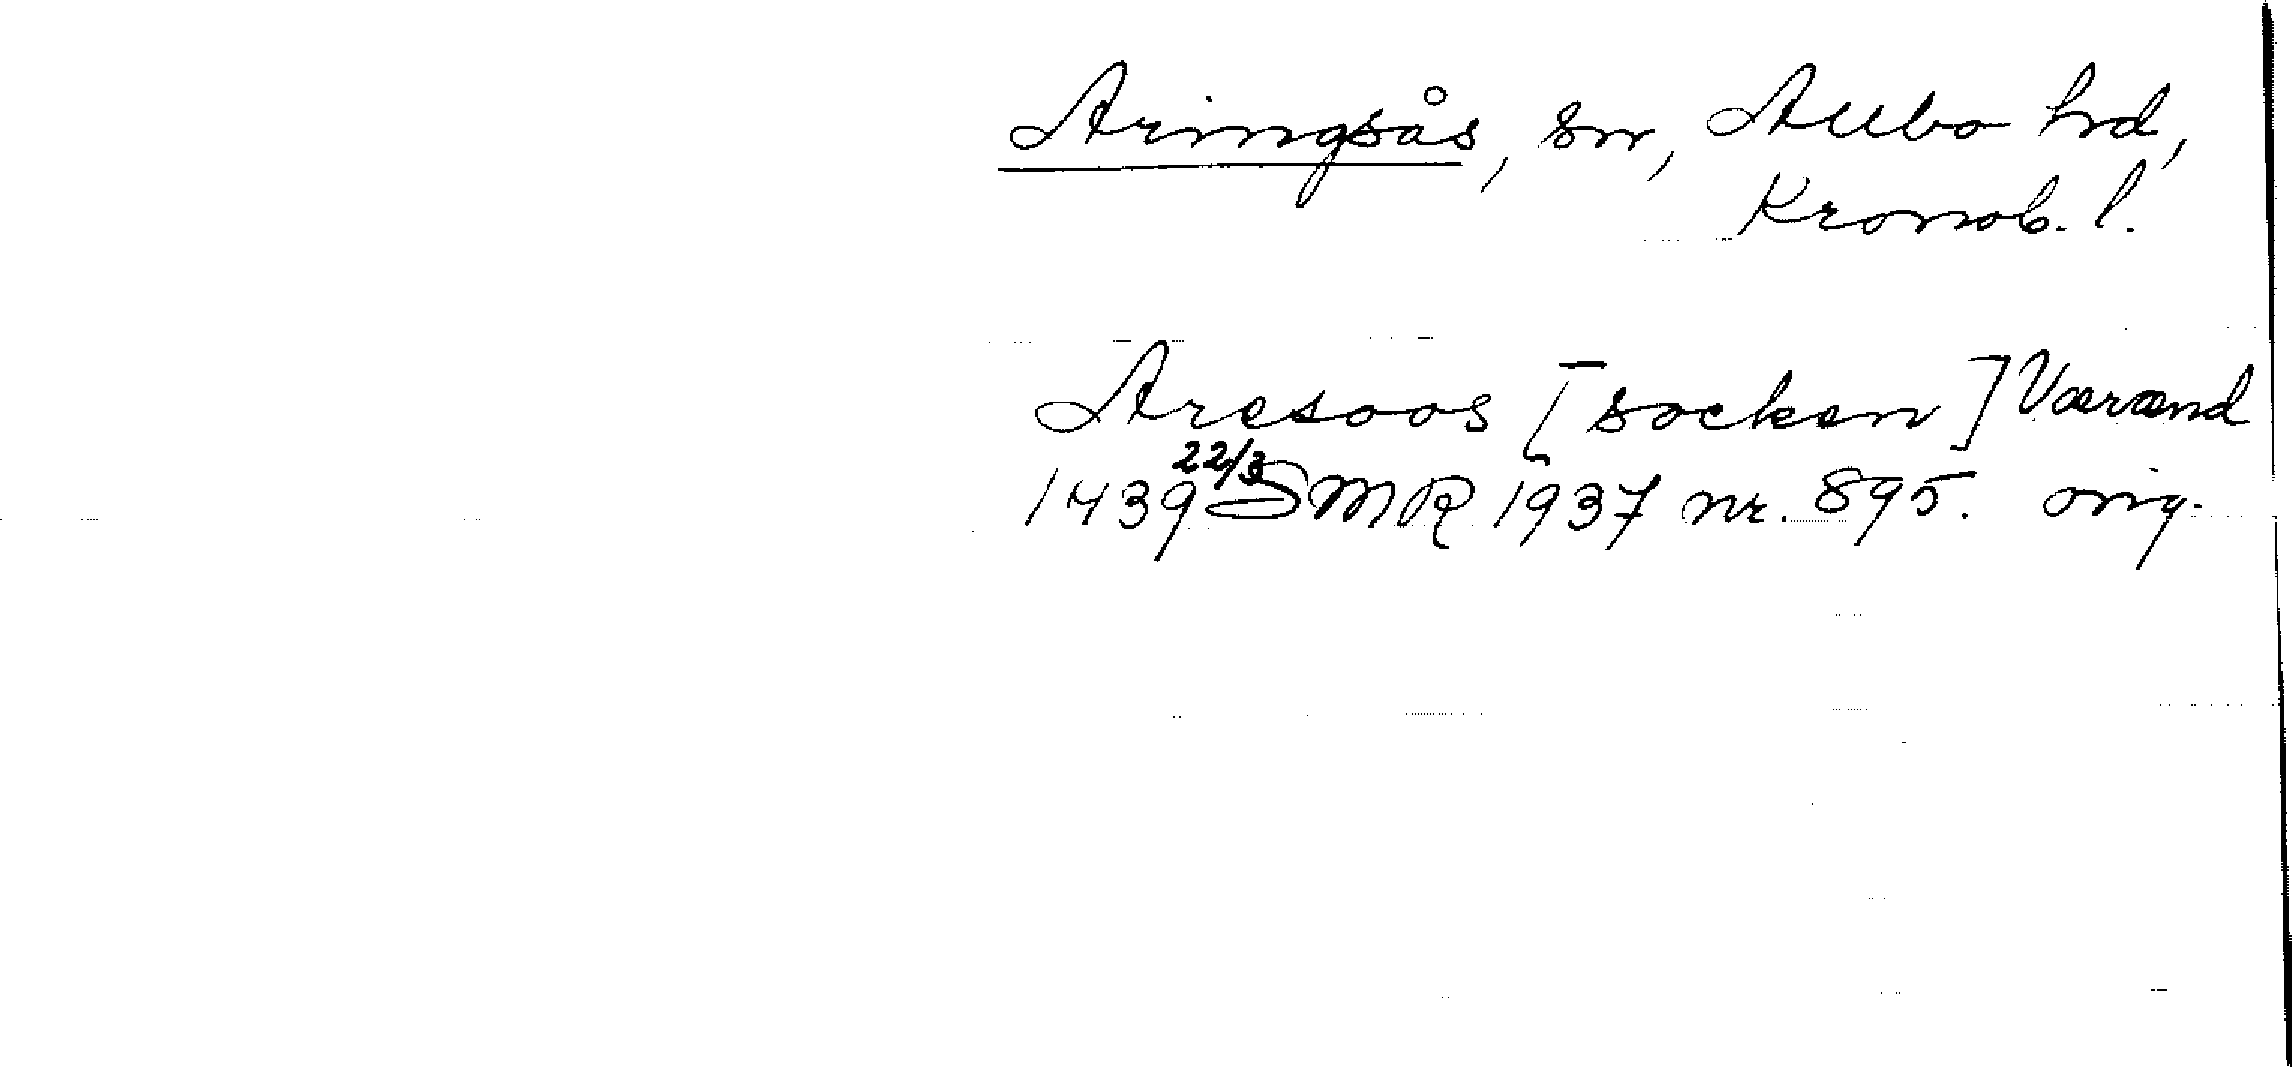 Aringsås, sn, Allbo hd,
Kronob. l.
Aresoos [socken] Værænd
1439 22/3 SMR 1937 nr. 895. orig.